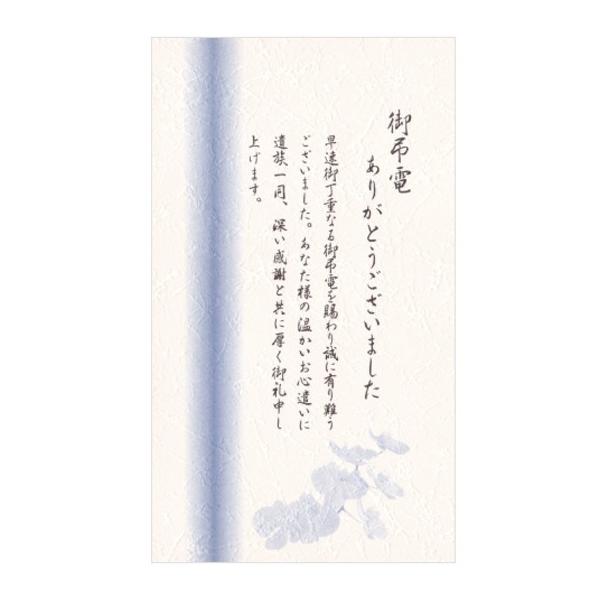 御弔電
ありがとうございました
早速御丁重なる御弔電を賜わり誠に有り難う
ございました。あなた様の温かいお心遣いに
遺族一同、深い感謝と共に厚く御礼申し
上げます。